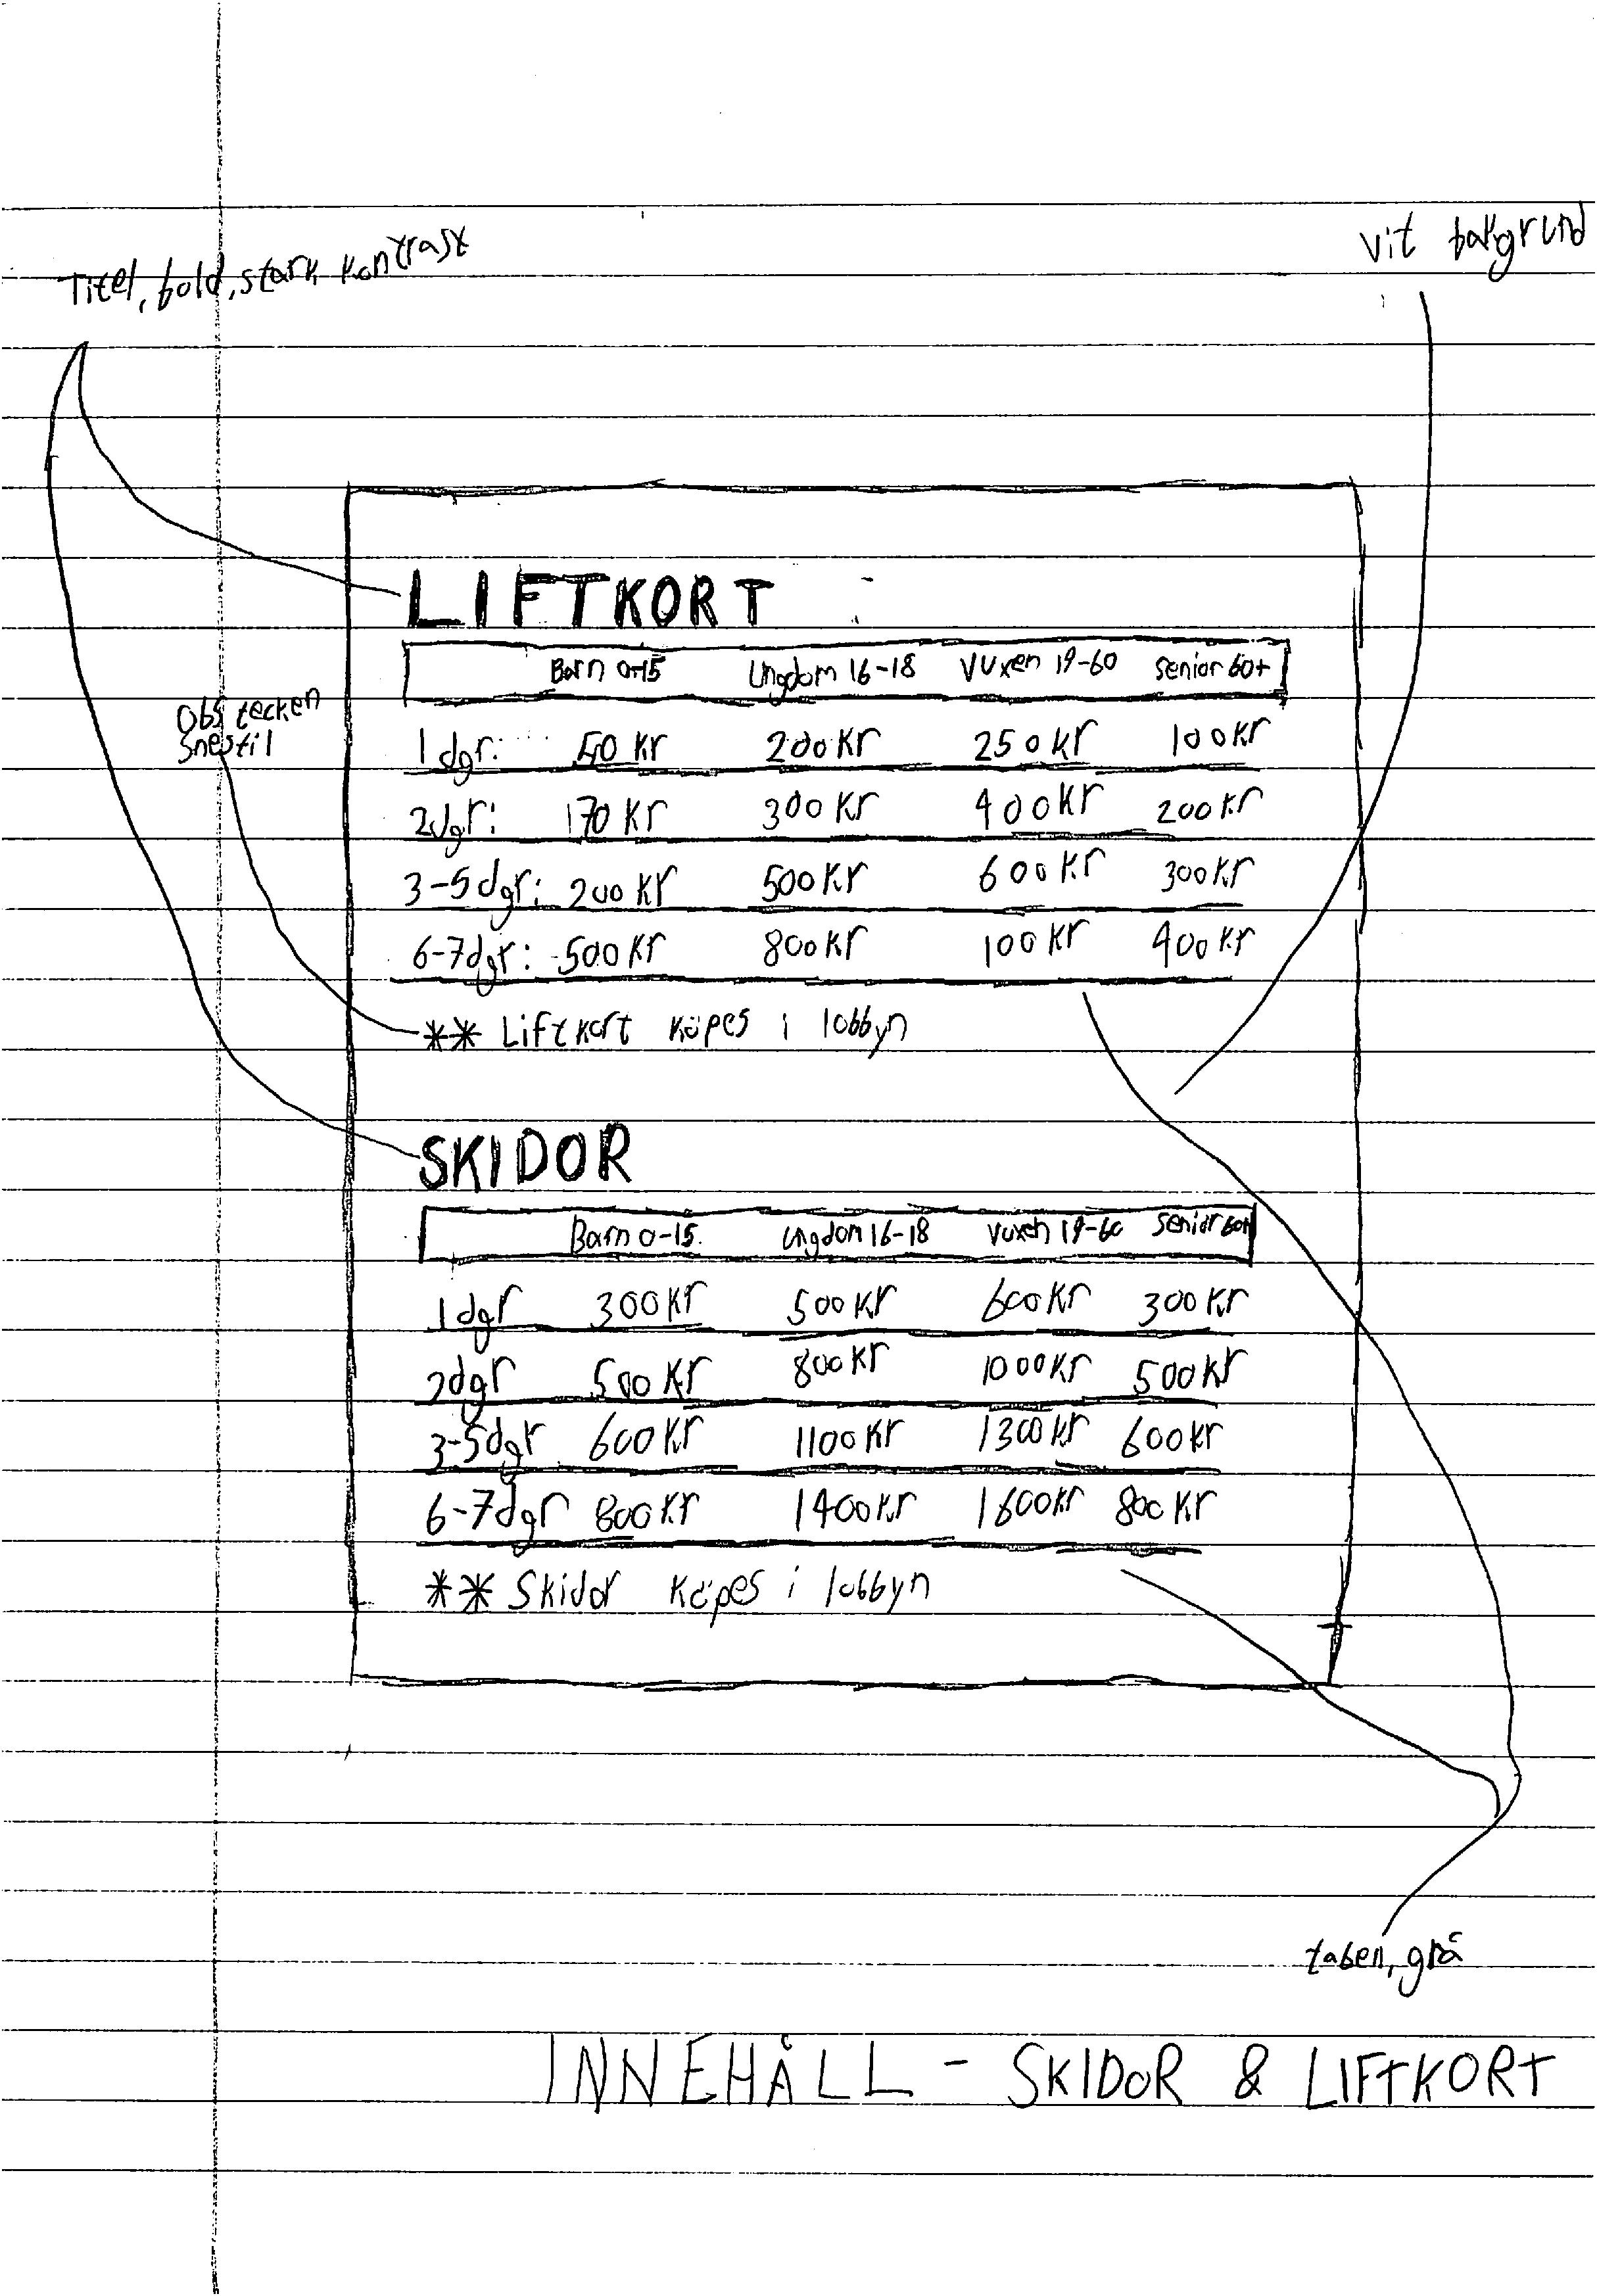 Titel, bold, stark kontrast
vit bakgrund
LIFTKORT
Barn 0-15 Ungdom 16-18 Vuxen 19-60 Senior 60+
Obs tecken
Snestil
1 dgr: 50 kr 200 kr 250 kr 100 kr
2dgr: 170 kr 300 kr 400 kr 200 kr
3-5 dgr: 200 kr 500 kr 600 kr 300 kr
6-7dgr: 500 kr 800 kr 100 kr 400 kr
** Liftkort köpes i lobbyn
SKIDOR
Barn 0-15 Ungdom 16-18 Vuxen 19-60 Senior 60+
1 dgr 300 kr 500 kr 600 kr 300 kr
2dgr 500 kr 800 kr 1000 kr 500 kr
3-5dgr 600 kr 1100 kr 1300 kr 600 kr
6-7dgr 800 kr 1400 kr 1600 kr 800 kr
** Skidor köpes i lobbyn
taben, grå
INNEHÅLL - SKIDOR & LIFTKORT